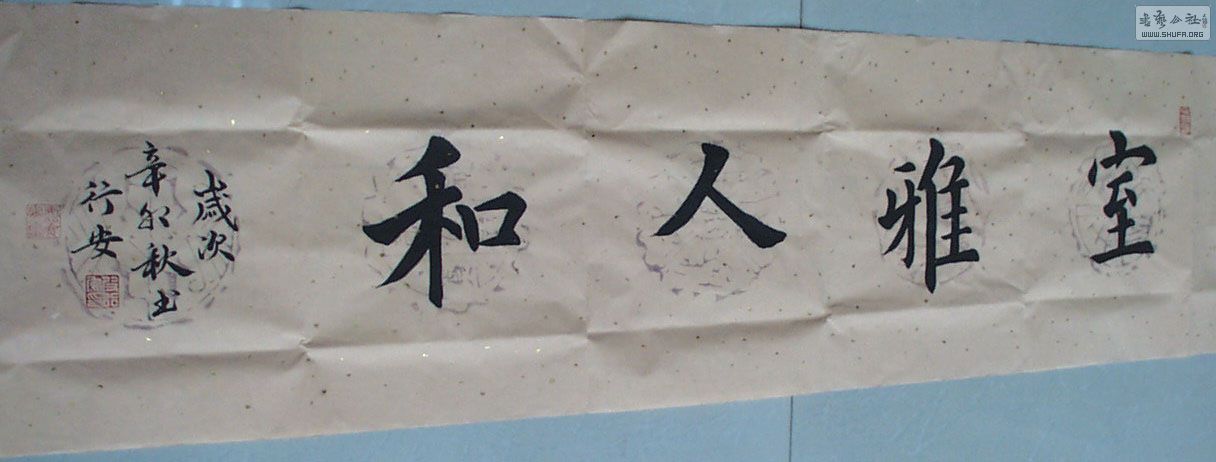 室雅人和
歲次
辛卯秋书
行安
书艺公社
WWW.SHUFA.ORG